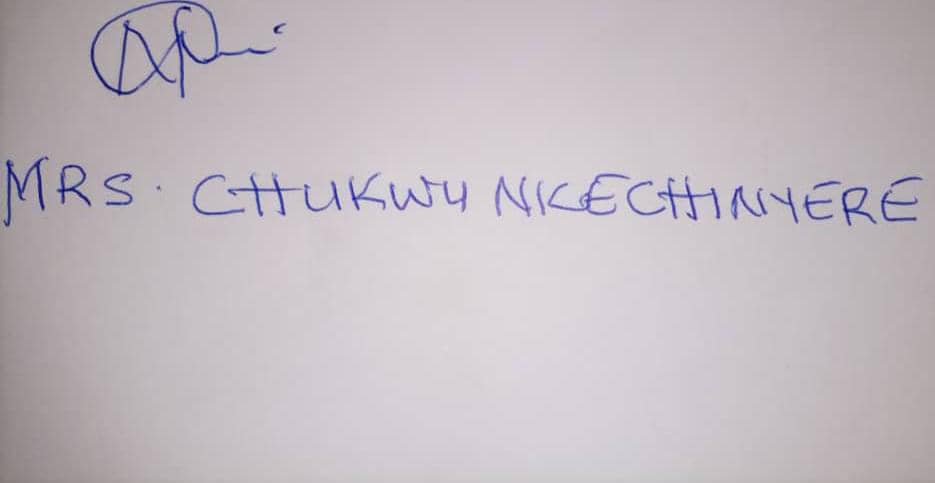 MRS. CHUKWU NKECHINYERE